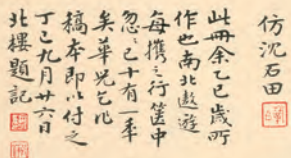 仿沈石田
此冊余乙巳歲所
作也南北遨遊
每攜之行篋中
忽忽已十有一年
矣華兄乞此
稿本即以付之
丁巳九月廿六日
北樓題記